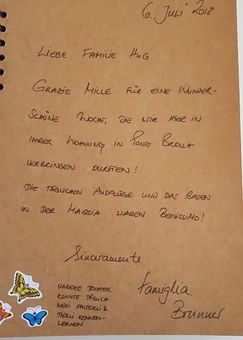 6. Juli 2018
Liebe Familie Hug
Grazie Mille für eine wunder-
schöne Woche, die wir hier in
ihrer Wohnung in Ponte Brolla
verbringen durften!
Die täglichen Ausflüge und das Baden
in der Maggia waren benissimo!
Sinceramente
Famiglia
Brunner
Unsere Tochter
konnte täglich
neue Falterli &
Tierli kennen-
lernen